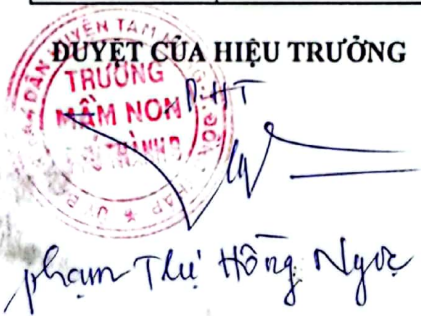 DUYỆT CỦA HIỆU TRƯỞNG
TRƯỜNG
MẦM NON
P.HT
Phạm Thị Hồng Ngọc